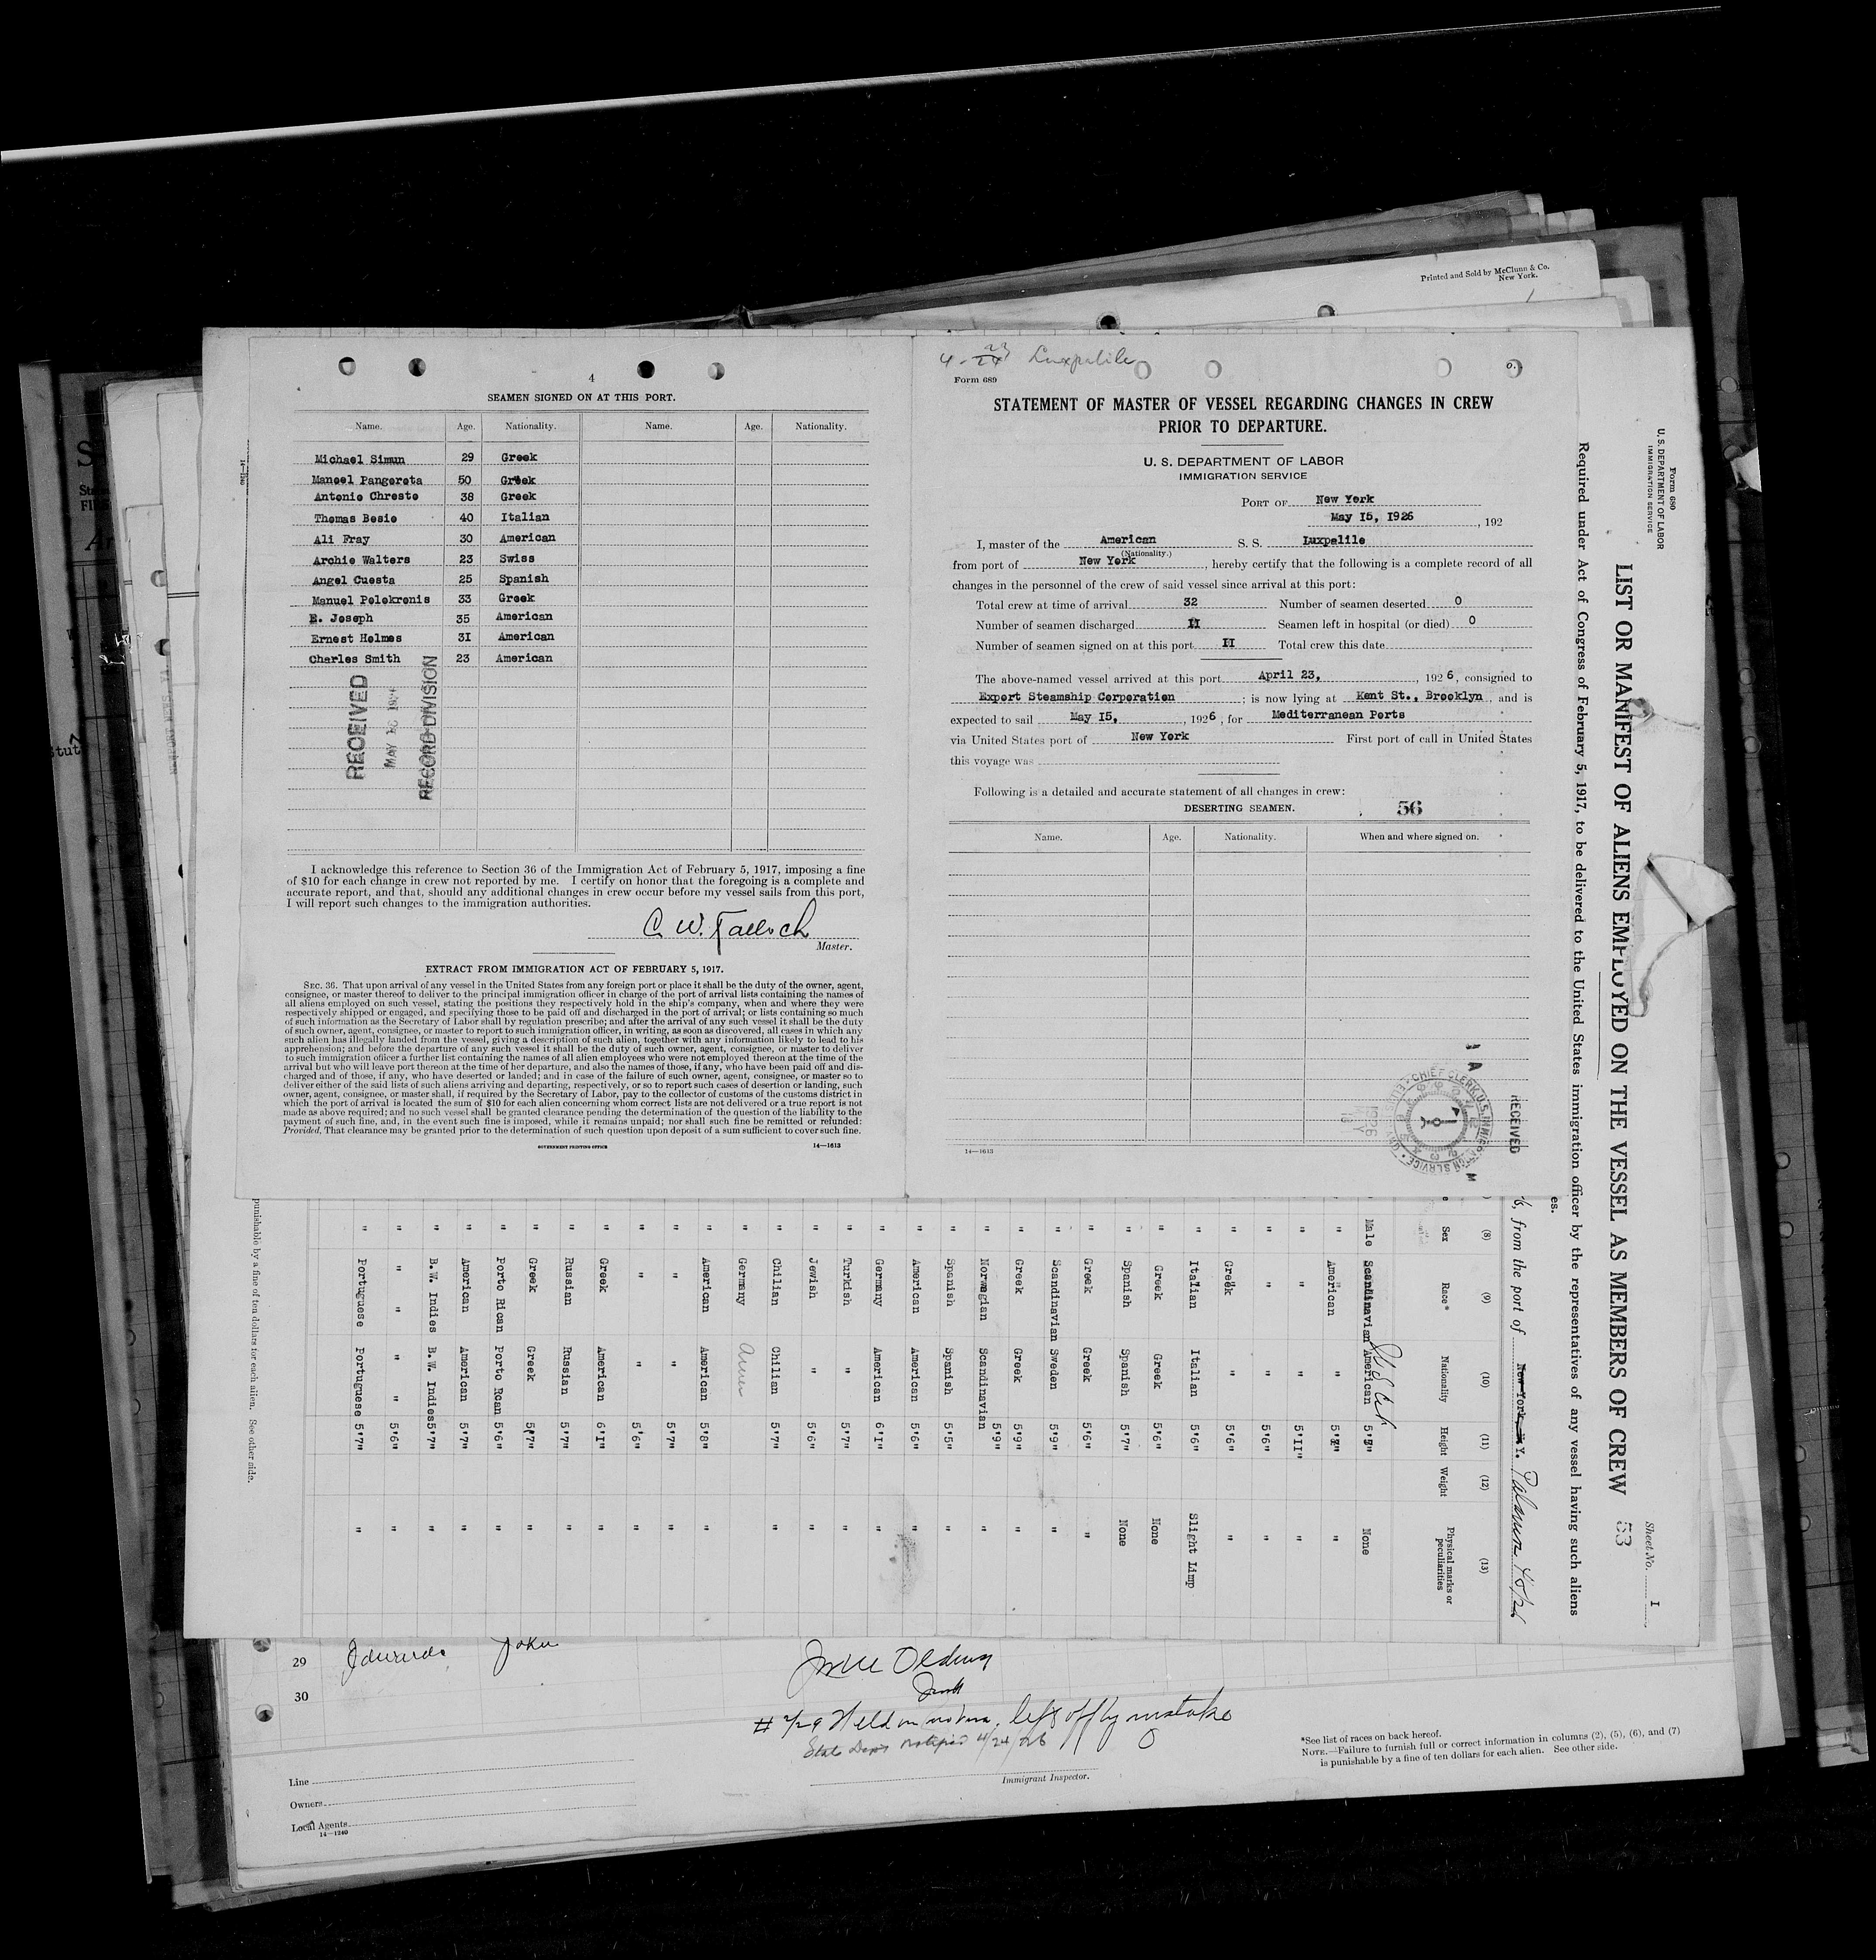 Printed and Sold by McClunn & Co.
New York.
4
SEAMEN SIGNED ON AT THIS PORT.
Name. Age. Nationality. Name. Age. Nationality.
Michael Simun 29 Greek
Manoel Pangereta 50 Greek
Antonio Chresto 38 Greek
Thomas Besio 40 Italian
Ali Fray 30 American
Archie Walters 23 Swiss
Angel Cuesta 25 Spanish
Manuel Pelekronis 33 Greek
E. Joseph 35 American
Ernest Holmes 31 American
Charles Smith 23 American
RECEIVED
MAY
RECORD DIVISION
I acknowledge this reference to Section 36 of the Immigration Act of February 5, 1917, imposing a fine
of $10 for each change in crew not reported by me. I certify on honor that the foregoing is a complete and
accurate report, and that, should any additional changes in crew occur before my vessel sails from this port,
I will report such changes to the immigration authorities.
C. W.
Master.
EXTRACT FROM IMMIGRATION ACT OF FEBRUARY 5, 1917.
SEC. 36. That upon arrival of any vessel in the United States from any foreign port or place it shall be the duty of the owner, agent,
consignee, or master thereof to deliver to the principal immigration officer in charge of the port of arrival lists containing the names of
all aliens employed on such vessel, stating the positions they respectively hold in the ship's company, when and where they were
respectively shipped or engaged, and specifying those to be paid off and discharged in the port of arrival; or lists containing so much
of such information as the Secretary of Labor shall by regulation prescribe; and after the arrival of any such vessel it shall be the duty
of such owner, agent, consignee, or master to report to such immigration officer, in writing, as soon as discovered, all cases in which any
such alien has illegally landed from the vessel, giving a description of such alien, together with any information likely to lead to his
apprehension; and before the departure of any such vessel it shall be the duty of such owner, agent, consignee, or master to deliver
to such immigration officer a further list containing the names of all alien employees who were not employed thereon at the time of the
arrival but who will leave port thereon at the time of her departure, and also the names of those, if any, who have been paid off and dis-
charged and of those, if any, who have deserted or landed; and in case of the failure of such owner, agent, consignee, or master so to
deliver either of the said lists of such aliens arriving and departing, respectively, or so to report such cases of desertion or landing, such
owner, agent, consignee, or master shall, if required by the Secretary of Labor, pay to the collector of customs of the customs district in
which the port of arrival is located the sum of $10 for each alien concerning whom correct lists are not delivered or a true report is not
made as above required; and no such vessel shall be granted clearance pending the determination of the question of the liability to the
payment of such fine, and, in the event such fine is imposed, while it remains unpaid; nor shall such fine be remitted or refunded:
Provided, That clearance may be granted prior to the determination of such question upon deposit of a sum sufficient to cover such fine.
GOVERNMENT PRINTING OFFICE 14—1613
14—1240
4-23 Luxpalile
Form 689
STATEMENT OF MASTER OF VESSEL REGARDING CHANGES IN CREW
PRIOR TO DEPARTURE.
U. S. DEPARTMENT OF LABOR
IMMIGRATION SERVICE
PORT OF New York
May 15, 1926, 192
I, master of the American S. S. Luxpalile
(Nationality.)
from port of New York, hereby certify that the following is a complete record of all
changes in the personnel of the crew of said vessel since arrival at this port:
Total crew at time of arrival 32 Number of seamen deserted 0
Number of seamen discharged 11 Seamen left in hospital (or died) 0
Number of seamen signed on at this port 11 Total crew this date
The above-named vessel arrived at this port April 23, , 1926, consigned to
Export Steamship Corporation ; is now lying at Kent St., Brooklyn, and is
expected to sail May 15, , 1926, for Mediterranean Ports
via United States port of New York First port of call in United States
this voyage was
Following is a detailed and accurate statement of all changes in crew:
DESERTING SEAMEN. 56
Name. Age. Nationality. When and where signed on.
14—1613
CHIEF CLERK U.S. IMMIGRATION SERVICE
1926
RECEIVED
Form 680
U. S. DEPARTMENT OF LABOR
IMMIGRATION SERVICE
Sheet No. 1
LIST OR MANIFEST OF ALIENS EMPLOYED ON THE VESSEL AS MEMBERS OF CREW 53
Required under Act of Congress of February 5, 1917, to be delivered to the United States immigration officer by the representatives of any vessel having such aliens
es.
from the port of New York, N.Y.
(8) (9) (10) (11) (12) (13)
Sex Race* Nationality Height Weight Physical marks or peculiarities
Male Scandinavian American 5'7" None
" American " 5'7" "
" " " 5'11" "
" " " 5'6" "
" Greek " 5'6" "
" Italian Italian 5'6" Slight Limp
" Greek Greek 5'6" None
" Spanish Spanish 5'7" None
" Greek Greek 5'6" "
" Scandinavian Sweden 5'9" "
" Greek Greek 5'9" "
" Norwegian Scandinavian 5'9" "
" Spanish Spanish 5'5" "
" American American 5'6" "
" Germany American 6'1" "
" Turkish " 5'7" "
" Jewish " 5'6" "
" Chilian Chilian 5'7" "
" Germany Amer
" American American 5'8" "
" " " 5'7" "
" " " 5'6" "
" Greek American 6'1" "
" Russian Russian 5'7" "
" Greek Greek 5'7" "
" Porto Rican Porto Rcan 5'6" "
" American American 5'7" "
" B.W. Indies B.W. Indies 5'7" "
" " " " " 5'6" "
" Portuguese Portuguese 5'7" "
punishable by a fine of ten dollars for each alien. See other side.
29 John
30
left off by mistake
State Dept Notified 4/24/26
Line
Owners
Local Agents
14—1240
Immigrant Inspector.
*See list of races on back hereof.
NOTE.—Failure to furnish full or correct information in columns (2), (5), (6), and (7)
is punishable by a fine of ten dollars for each alien. See other side.